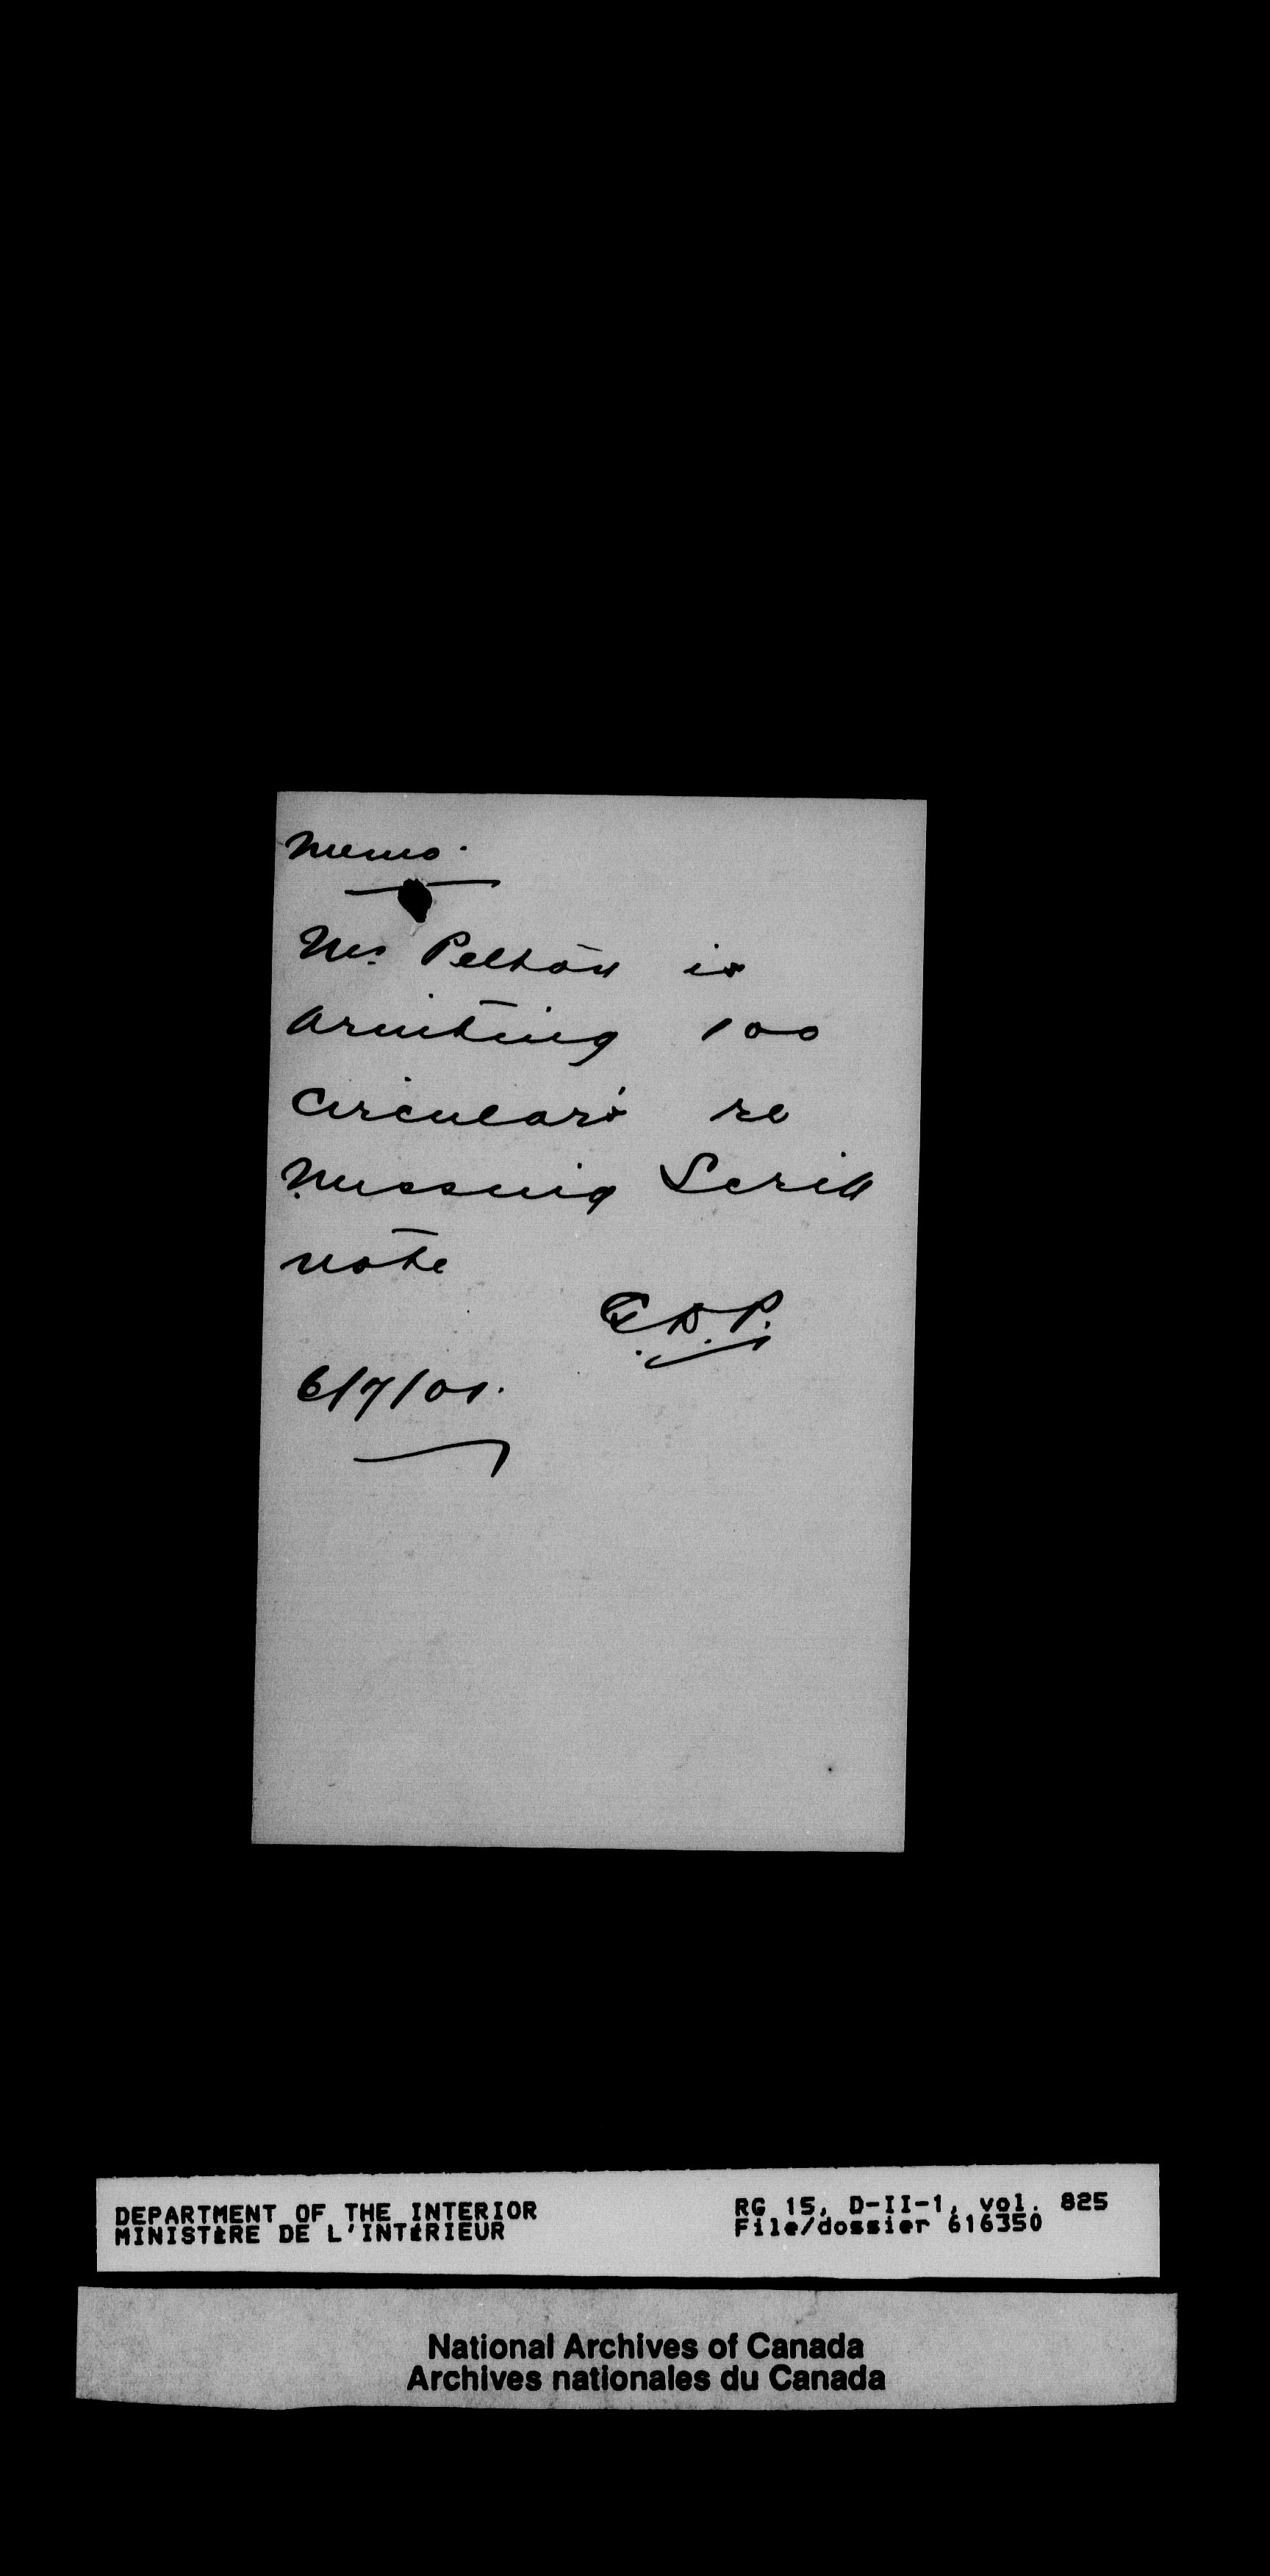 Memo.
Mr. Pelton is
printing 100
Circulars re
Missing Scrip
note
6/7/01.
DEPARTMENT OF THE INTERIOR
MINISTÈRE DE L'INTÉRIEUR
RG 15, D-II-1, vol. 825
File/dossier 616350
National Archives of Canada
Archives nationales du Canada